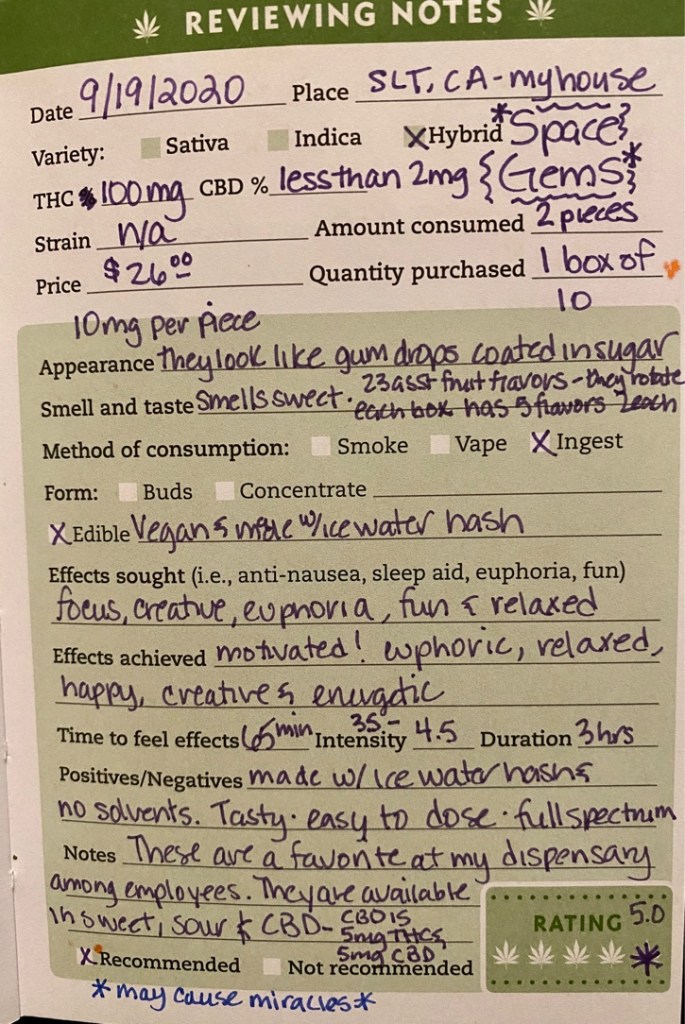 REVIEWING NOTES
Date 9/19/2020 Place SLT, CA - my house
Variety: Sativa Indica X Hybrid *Space
THC 100mg CBD % less than 2mg {Gems*}
Strain n/a Amount consumed 2 pieces
Price $26.00 Quantity purchased 1 box of
10
10mg per piece
Appearance they look like gum drops coated in sugar
23 asst fruit flavors - they rotate
Smell and taste smells sweet. each box has 5 flavors 2 each
Method of consumption: Smoke Vape X Ingest
Form: Buds Concentrate
X Edible Vegan & made w/ice water hash
Effects sought (i.e., anti-nausea, sleep aid, euphoria, fun)
focus, creative, euphoria, fun & relaxed
Effects achieved motivated! euphoric, relaxed,
happy, creative & energetic
Time to feel effects 65 min Intensity 35- 4.5 Duration 3 hrs
Positives/Negatives made w/ ice water hash &
no solvents. Tasty · easy to dose · full spectrum
Notes These are a favorite at my dispensary
among employees. They are available
in sweet, sour & CBD - CBD is
5mg THC &
5mg CBD
RATING 5.0
X Recommended Not recommended
*may cause miracles*